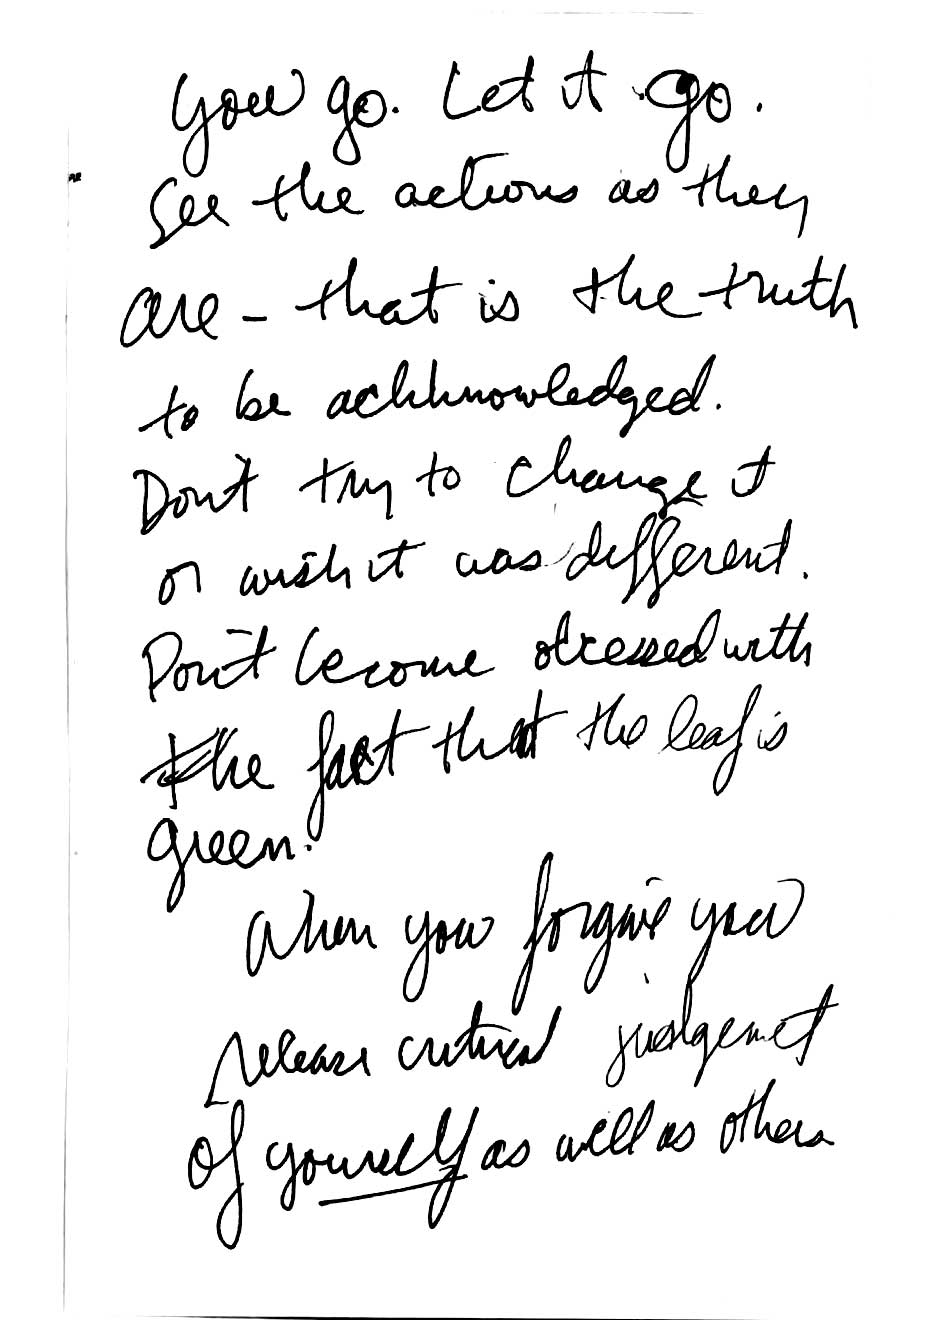 you go. Let it go.
See the actions as they
are - that is the truth
to be ackknowledged.
Don't try to change it
or wish it was different.
Don't become obsessed with
the fact that the leaf is
green.
When you forgive you
release critical judgemet
of yourself as well as others